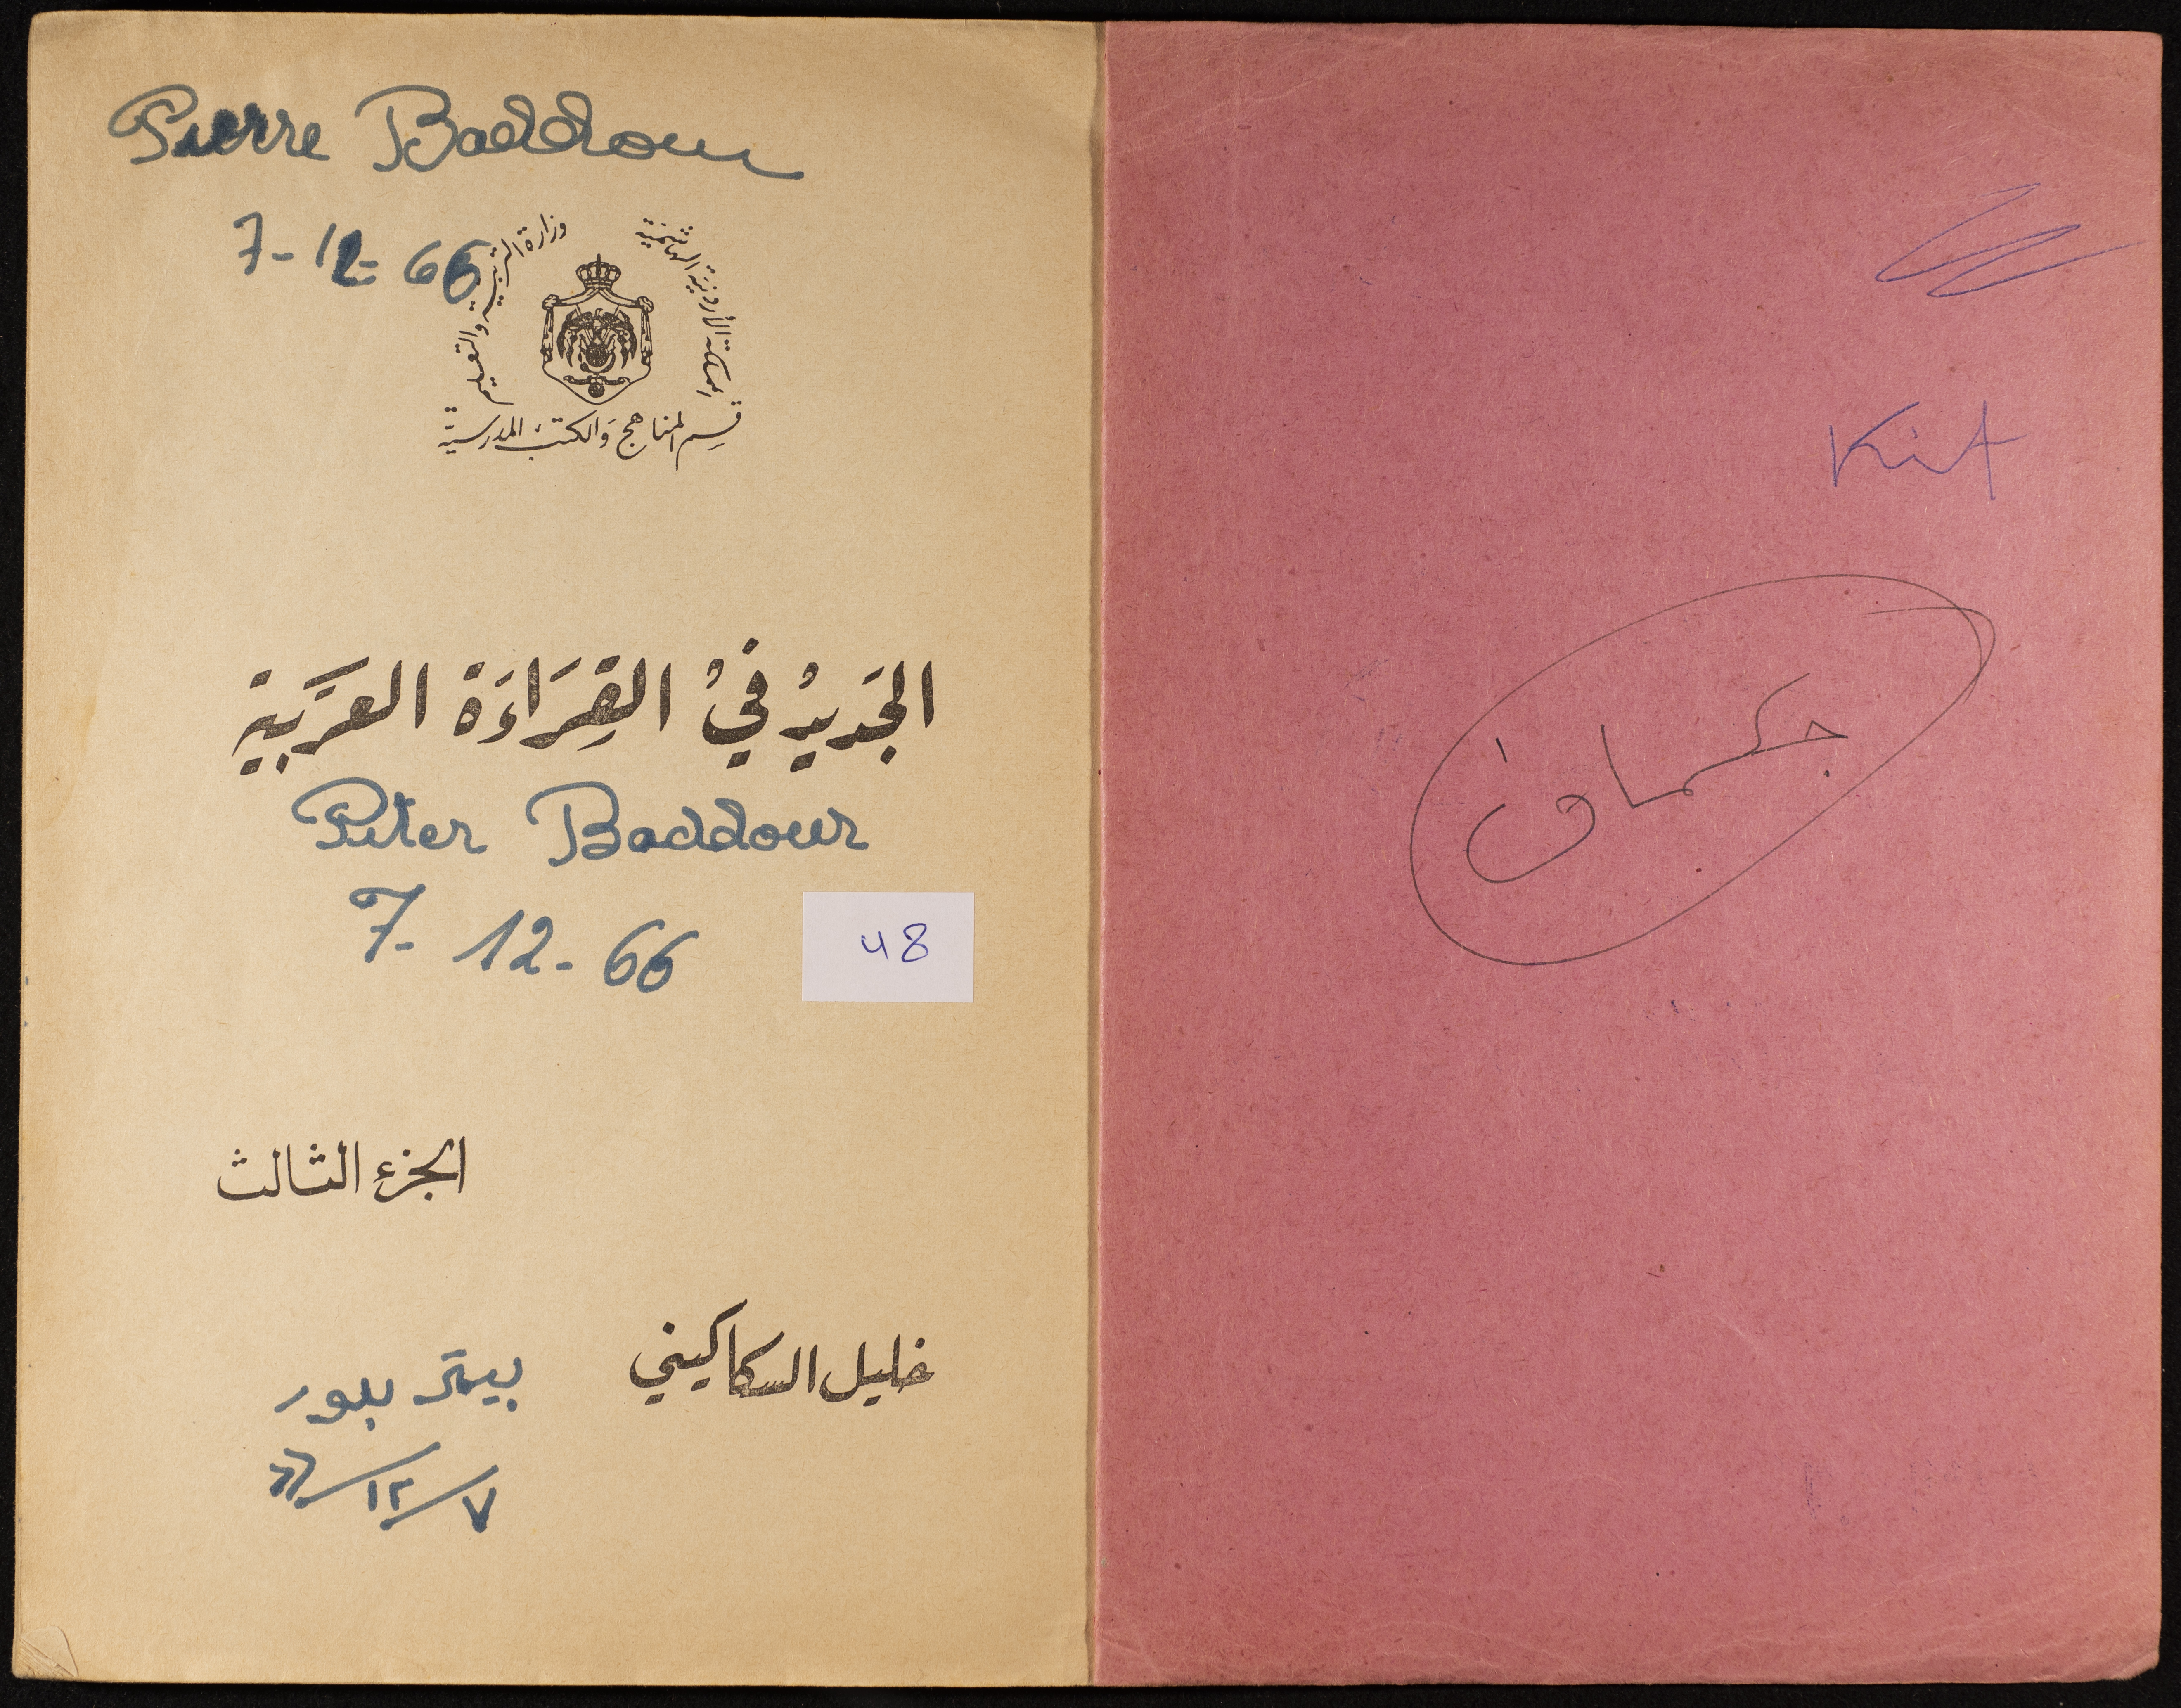 Pierre Baddour
7-12-66
المملكة الأردنية الهاشمية
وزارة التربية والتعليم
قسم المناهج والكتب المدرسية
الجَديدُ فيْ القِرَاءَة العَرَبية
Peter Baddour
7-12-66
48
الجزء الثالث
خليل السكاكيني
بيتر بدور
٧/١٢/٦٦
Kit